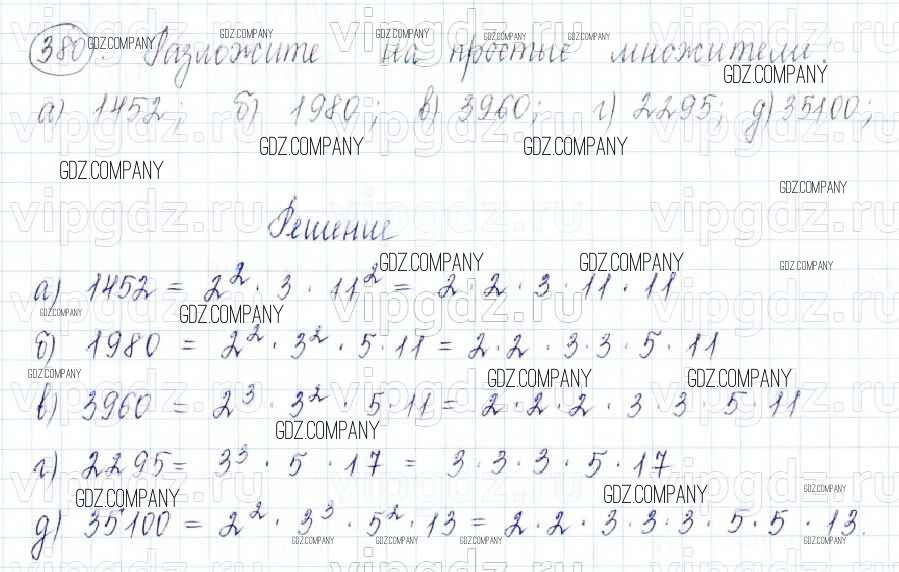 380. Разложите на простые множители:
а) 1452; б) 1980; в) 3960; г) 2295; д) 35100;
Решение
а) 1452 = 2² · 3 · 11² = 2 · 2 · 3 · 11 · 11
б) 1980 = 2² · 3² · 5 · 11 = 2 · 2 · 3 · 3 · 5 · 11
в) 3960 = 2³ · 3² · 5 · 11 = 2 · 2 · 2 · 3 · 3 · 5 · 11
г) 2295 = 3³ · 5 · 17 = 3 · 3 · 3 · 5 · 17
д) 35100 = 2² · 3³ · 5² · 13 = 2 · 2 · 3 · 3 · 3 · 5 · 5 · 13.
GDZ.COMPANY
vipgdz.ru